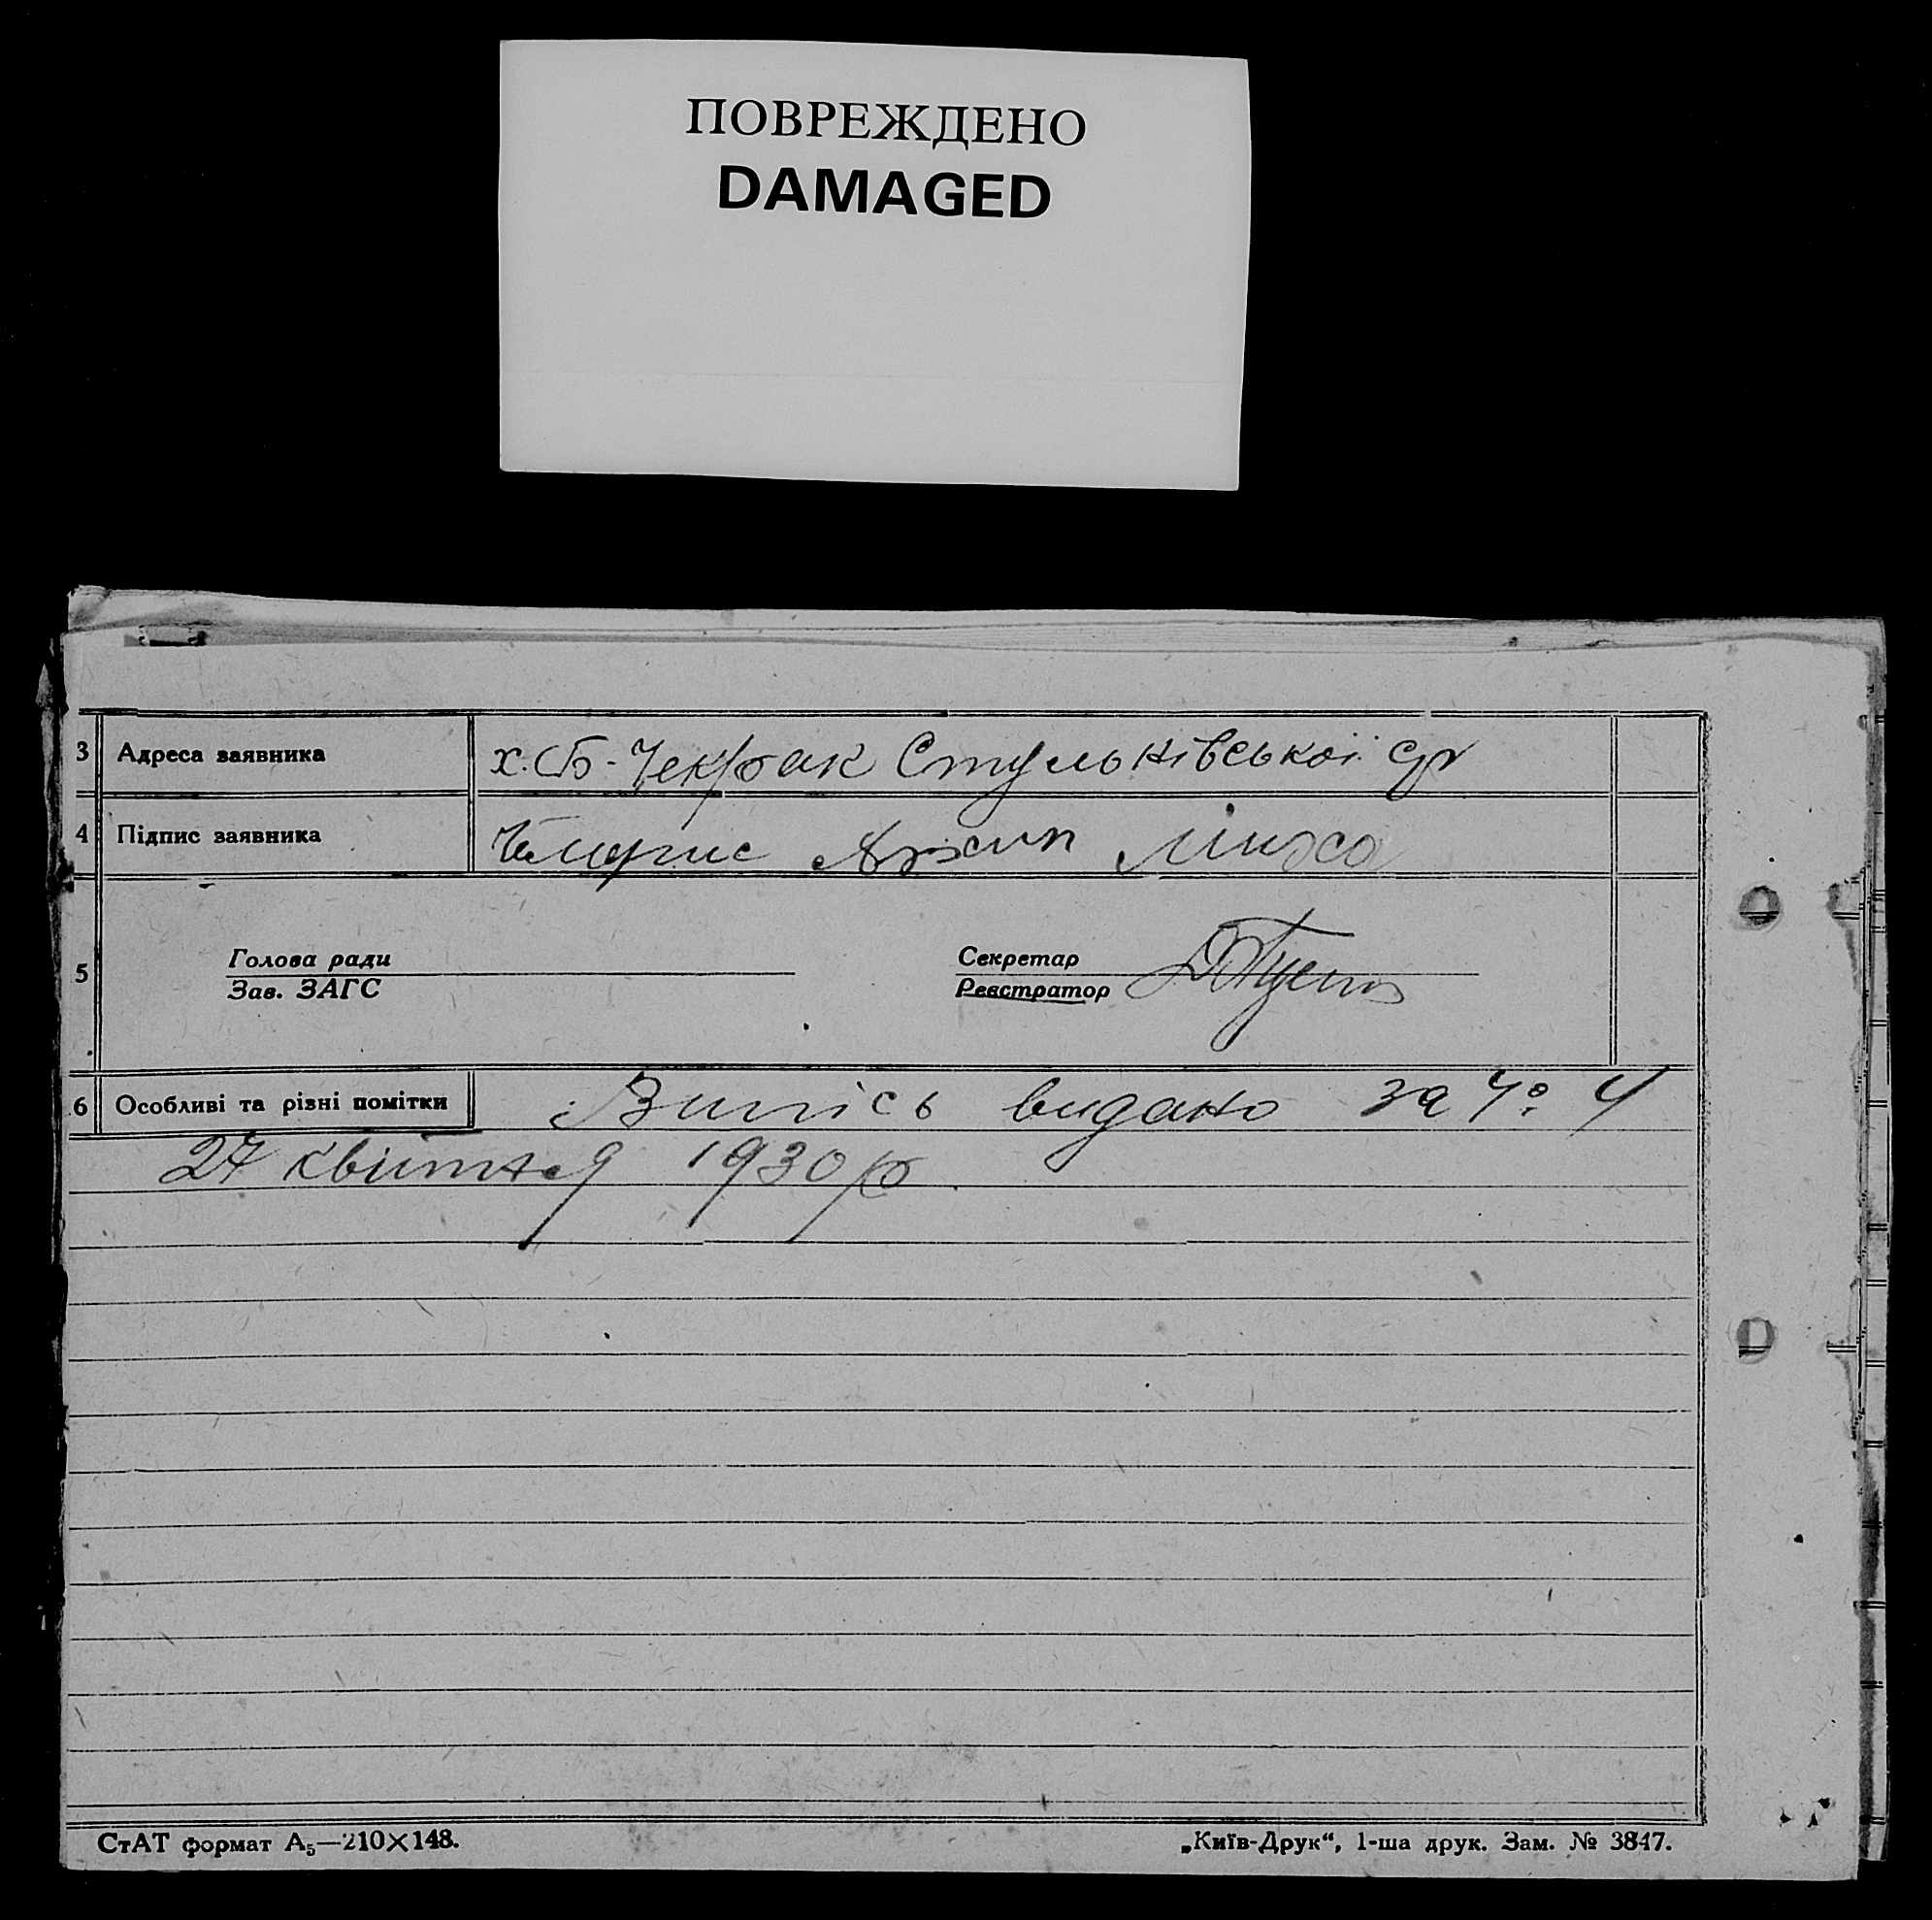 ПОВРЕЖДЕНО
DAMAGED
3 Адреса заявника х.Б-Чекрак Стульнівської с/р
4 Підпис заявника Архип
5 Голова ради
Зав. ЗАГС
Секретар
Реєстратор
6 Особливі та різні помітки Випісь видано за Ч: 4
27 квітня 1930 р
СтАТ формат А5—210×148.
„Київ-Друк“, 1-ша друк. Зам. № 3847.